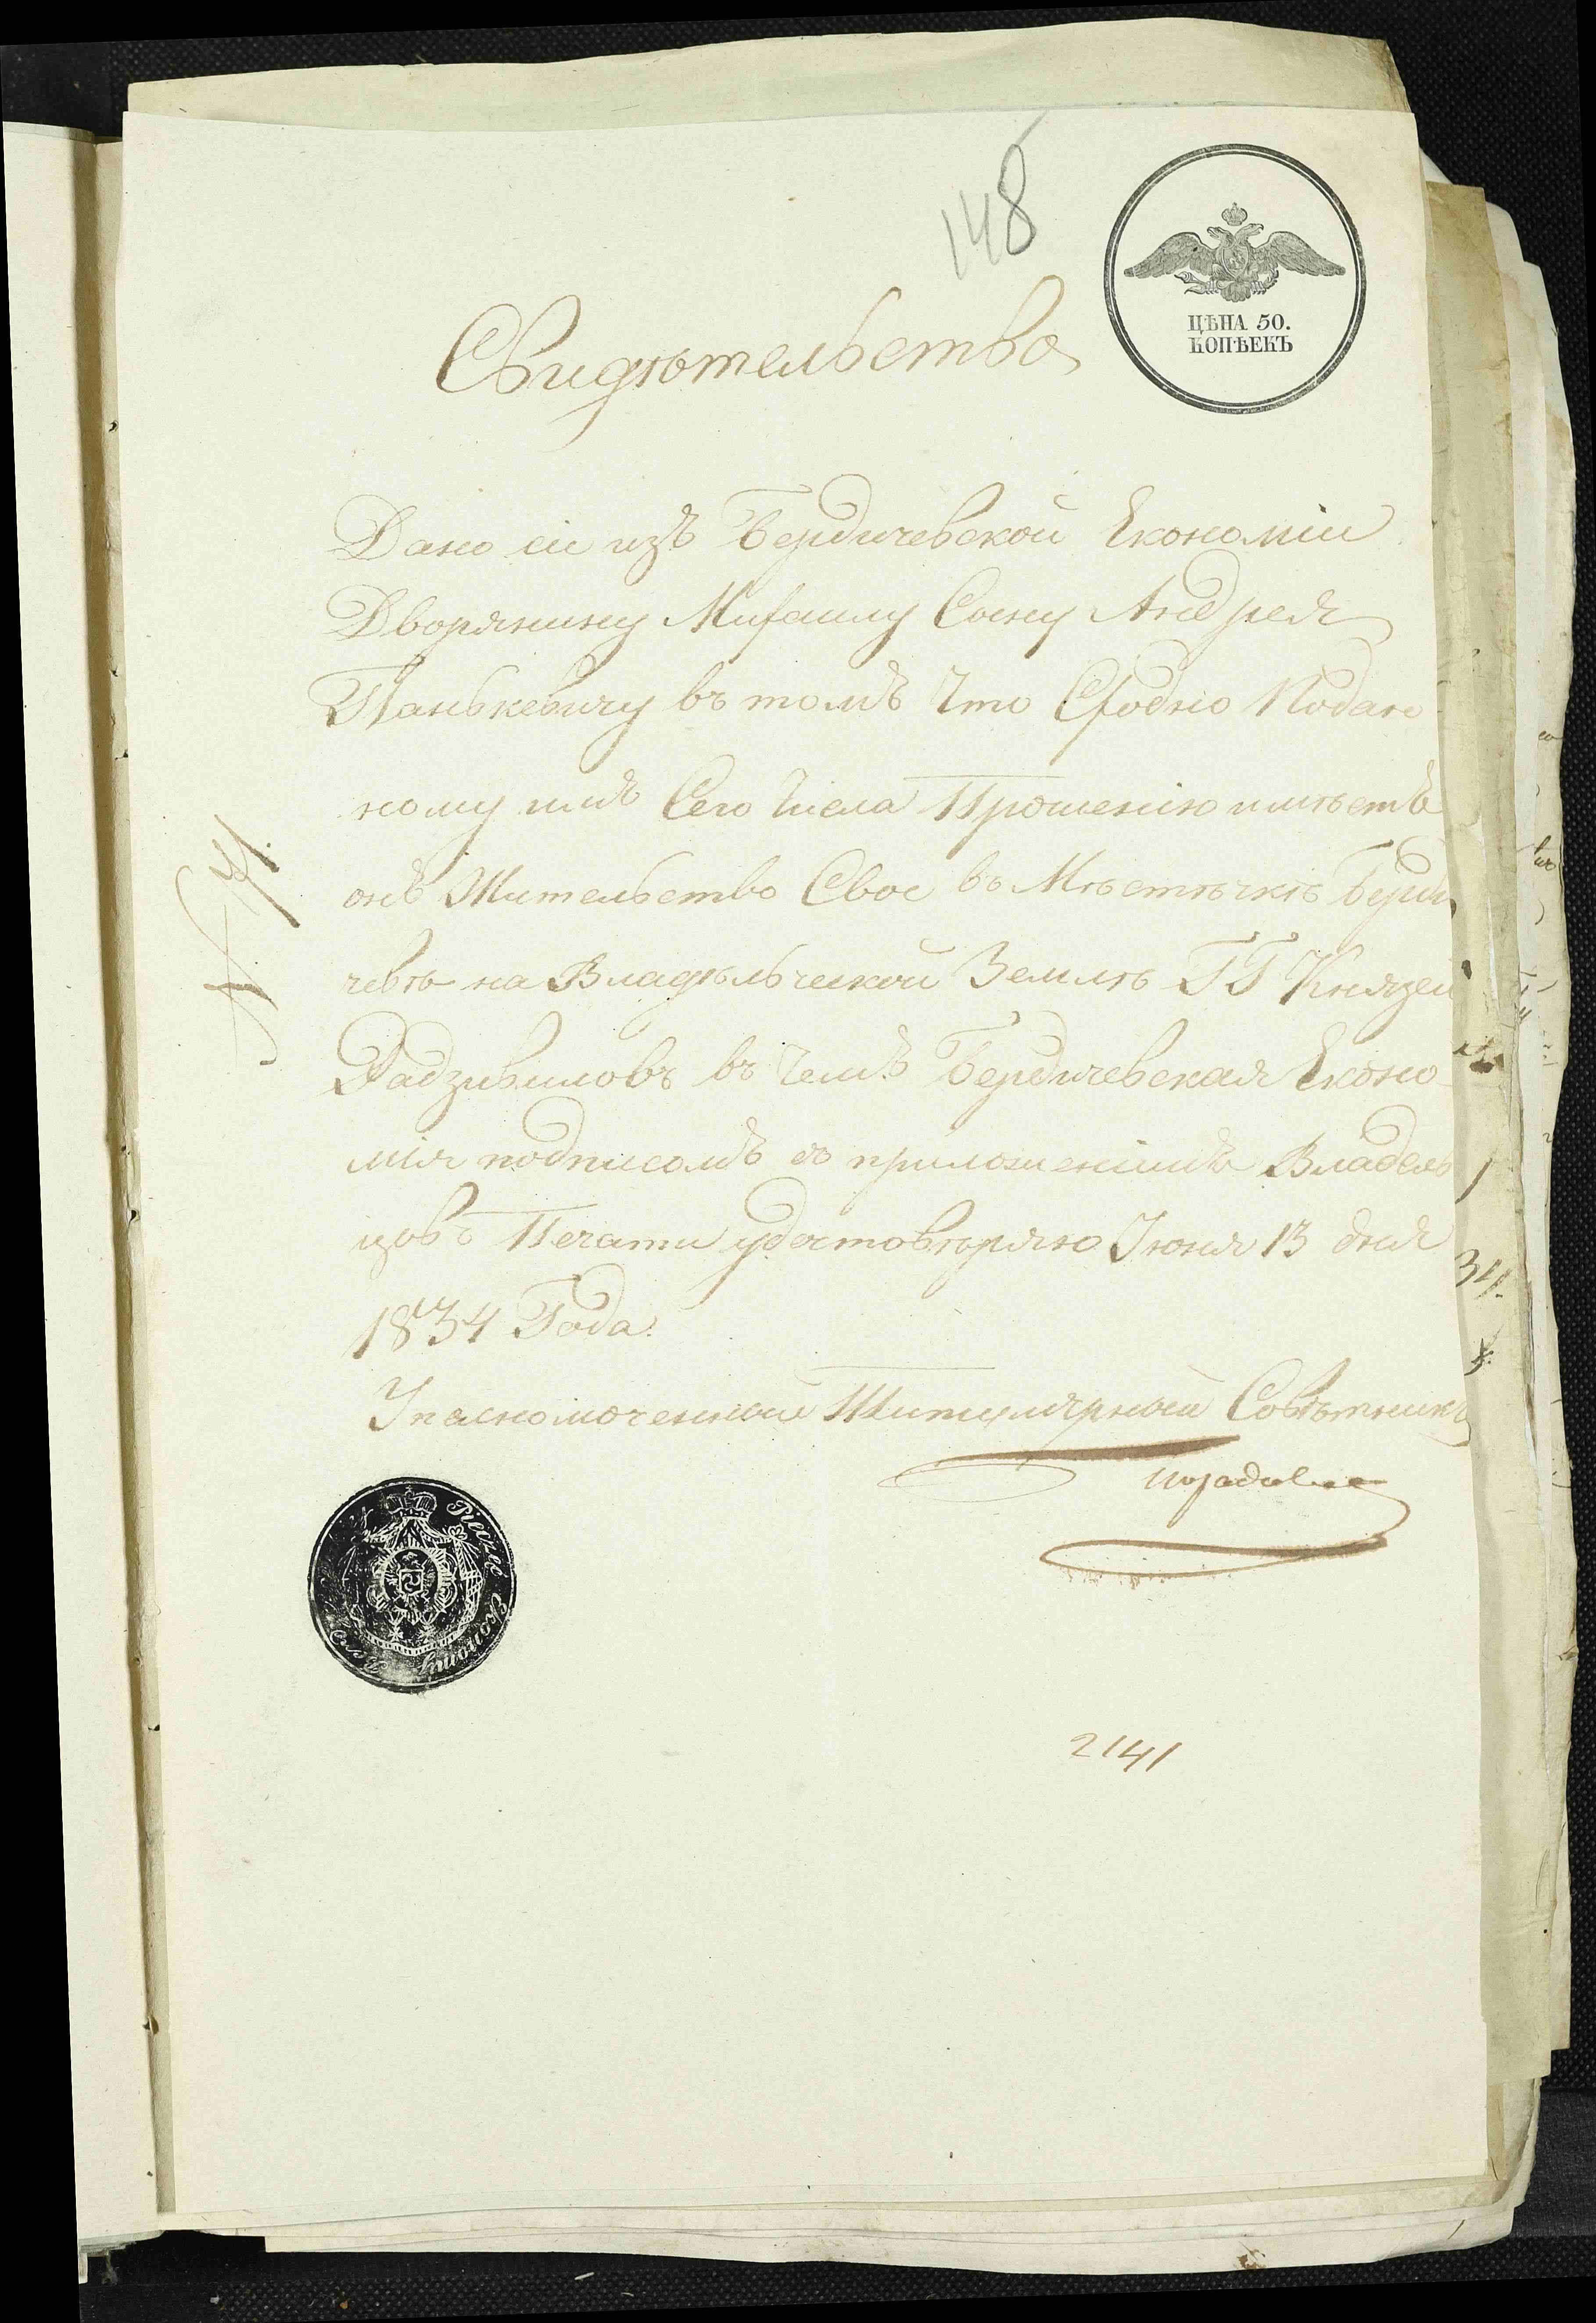 148
ЦѢНА 50.
КОПѢЕКЪ
Свидѣтельство
Дано сіе изъ Бердичевской Економіи
Дворянину Михаилу Сыну Андрея
Панькевичу въ томъ Что Сходно Подан
ному имъ Сего Числа Прошенію имѣетъ
онъ Жительство Свое въ Мѣстѣчкѣ Берди
чевѣ на Владѣльческой Землѣ ГГ Князей
Радзивиловъ въ Чемъ Бердичевская Еконо
мія подписомъ съ приложеніимъ Владель
цовъ Печати удостовѣряю Іюня 13 дня
1834 Года.
Уполномоченный Титулярный Совѣтникъ
2141
Pieczęć Ekonomij